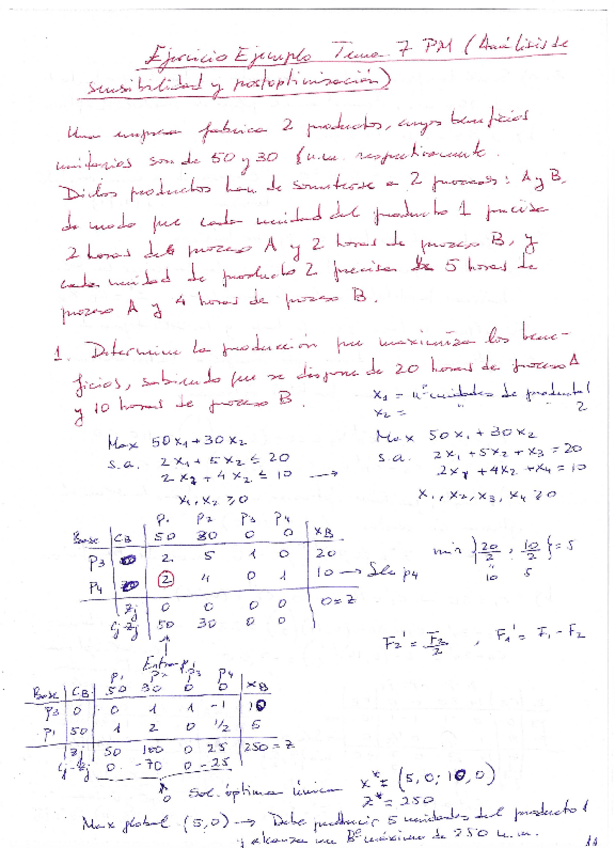 Ejercicio Ejemplo Tema 7 PM (Análisis de
sensibilidad y postoptimización)
Una empresa fabrica 2 productos, cuyos beneficios
unitarios son de 50 y 30 u.m. respectivamente.
Dichos productos han de someterse a 2 procesos: A y B,
de modo que cada unidad del producto 1 precisa
2 horas del proceso A y 2 horas de proceso B, y
cada unidad de producto 2 precisa de 5 horas de
proceso A y 4 horas de proceso B.
1. Determine la producción que maximiza los bene-
ficios, sabiendo que se dispone de 20 horas de proceso A
y 10 horas de proceso B.
x₁ = nº unidades de producto 1
x₂ = " " 2
Max 50x₁+30x₂
s.a. 2x₁+5x₂ ≤ 20
2x₁+4x₂ ≤ 10 →
x₁,x₂ ≥0
Max 50x₁+30x₂
s.a. 2x₁+5x₂+x₃=20
2x₁+4x₂+x₄=10
x₁,x₂,x₃,x₄ ≥0
P₁ P₂ P₃ P₄
Base CB 50 30 0 0 XB
P₃ 0 2 5 1 0 20
P₄ 0 2 4 0 1 10 → Sale P₄
Zj 0 0 0 0 0=Z
Cj-Zj 50 30 0 0
Entra P₁
min {20/2, 10/2}=5
10 5
F₂' = F₂/2 , F₁' = F₁-F₂
P₁ P₂ P₃ P₄
Base CB 50 30 0 0 XB
P₃ 0 0 1 1 -1 10
P₁ 50 1 2 0 1/2 5
Zj 50 100 0 25 250=Z
Cj-Zj 0 -70 0 -25
Sol. óptima única x* = (5,0,10,0)
z* = 250
Max global (5,0) → Debe producir 5 unidades del producto 1
y alcanza un Bº máximo de 250 u.m.